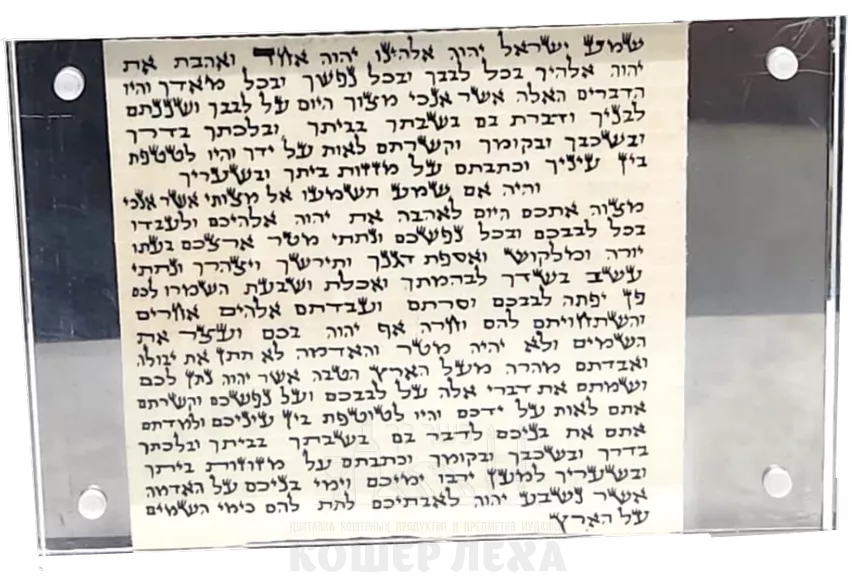 שמע ישראל יהוה אלהינו יהוה אחד ואהבת את
יהוה אלהיך בכל לבבך ובכל נפשך ובכל מאדך והיו
הדברים האלה אשר אנכי מצוך היום על לבבך ושננתם
לבניך ודברת בם בשבתך בביתך ובלכתך בדרך
ובשכבך ובקומך וקשרתם לאות על ידך והיו לטטפת
בין עיניך וכתבתם על מזזות ביתך ובשעריך
והיה אם שמע תשמעו אל מצותי אשר אנכי
מצוה אתכם היום לאהבה את יהוה אלהיכם ולעבדו
בכל לבבכם ובכל נפשכם ונתתי מטר ארצכם בעתו
יורה ומלקוש ואספת דגנך ותירשך ויצהרך ונתתי
עשב בשדך לבהמתך ואכלת ושבעת השמרו לכם
פן יפתה לבבכם וסרתם ועבדתם אלהים אחרים
והשתחויתם להם וחרה אף יהוה בכם ועצר את
השמים ולא יהיה מטר והאדמה לא תתן את יבולה
ואבדתם מהרה מעל הארץ הטבה אשר יהוה נתן לכם
ושמתם את דברי אלה על לבבכם ועל נפשכם וקשרתם
אתם לאות על ידכם והיו לטוטפת בין עיניכם ולמדתם
אתם את בניכם לדבר בם בשבתך בביתך ובלכתך
בדרך ובשכבך ובקומך וכתבתם על מזוזות ביתך
ובשעריך למען ירבו ימיכם וימי בניכם על האדמה
אשר נשבע יהוה לאבתיכם לתת להם כימי השמים
על הארץ
ДОСТАВКА КОШЕРНЫХ ПРОДУКТОВ И ПРЕДМЕТОВ ИУДАИКИ
КОШЕР ЛЕХА